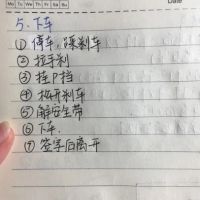 Mo Tu We Th Fr Sa Su
Date
5. 下车
① 停车，踩刹车
② 拉手刹
③ 挂P挡
④ 松开刹车
⑤ 解安全带
⑥ 下车.
⑦ 签字后离开